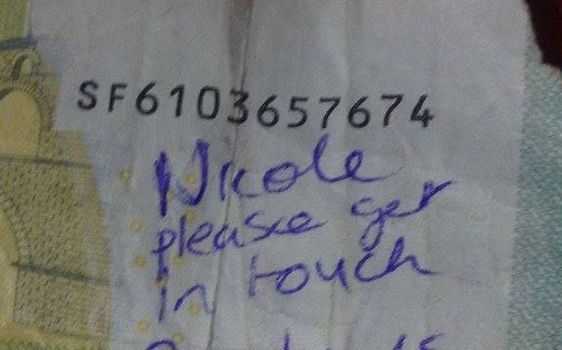 SF6103657674
Nicole
please get
in touch